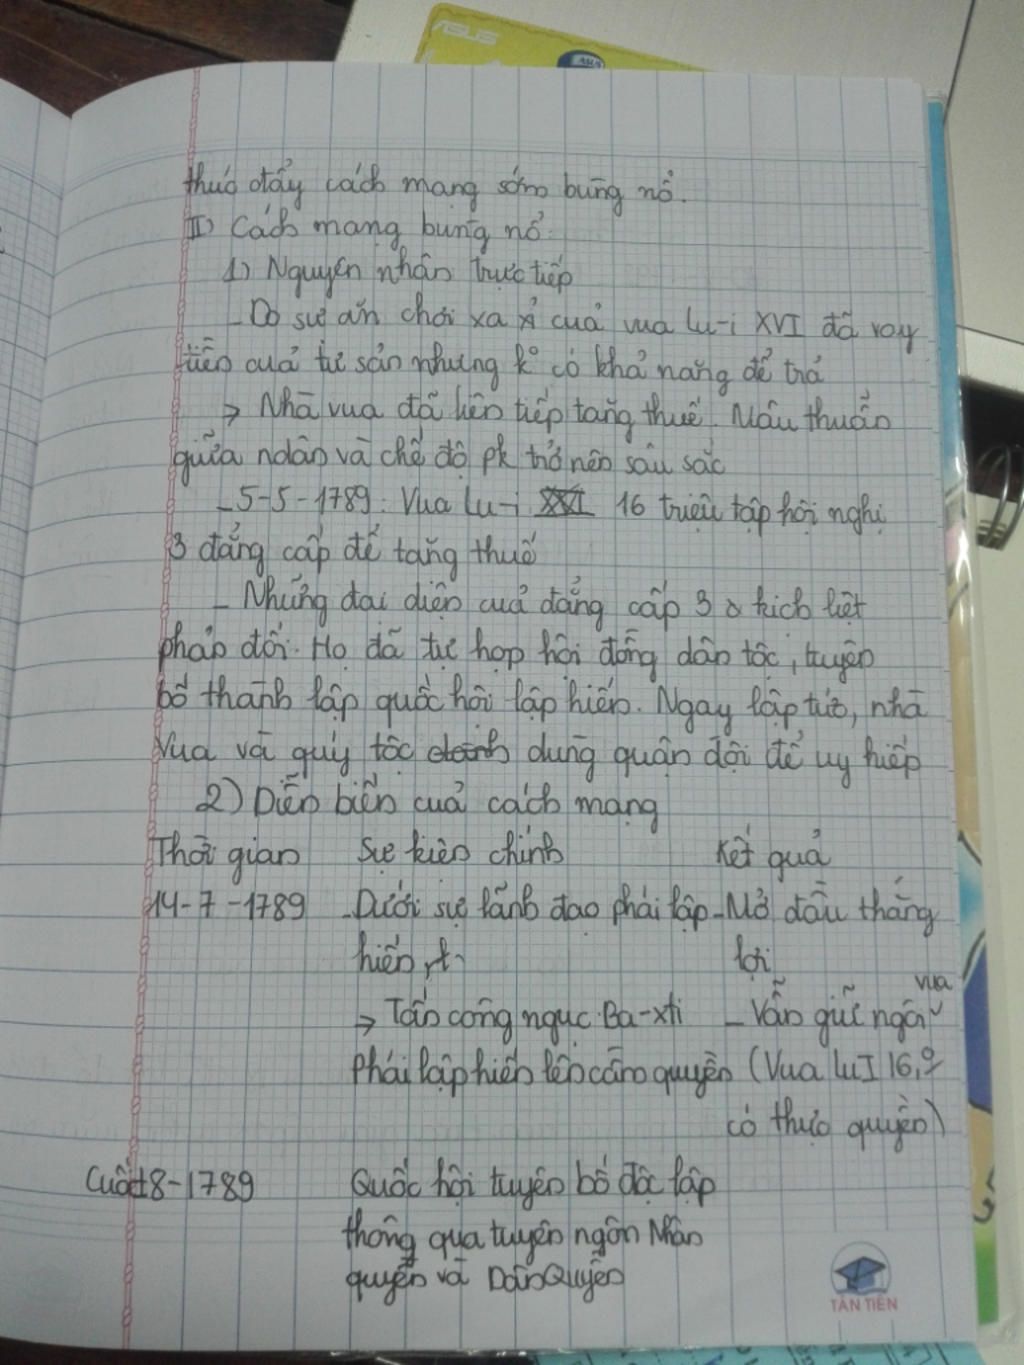 ASUS
thúc đẩy cách mạng sớm bùng nổ.
II) Cách mạng bùng nổ
1) Nguyên nhân trực tiếp
- Do sự ăn chơi xa xỉ của vua lu-i XVI đã vay
tiền của tư sản nhưng k° có khả năng để trả
→ Nhà vua đã liên tiếp tăng thuế. Mâu thuẫn
giữa ndân và chế độ pk trở nên sâu sắc
- 5-5-1789: Vua lu-i 16 triệu tập hội nghị
3 đẳng cấp để tăng thuế
- Những đại diện của đẳng cấp 3 kịch liệt
phản đối. Họ đã tự họp hội đồng dân tộc, tuyên
bố thành lập quốc hội lập hiến. Ngay lập tức, nhà
Vua và quý tộc dùng quân đội để uy hiếp
2) Diễn biến của cách mạng
Thời gian Sự kiện chính Kết quả
14-7-1789 - Dưới sự lãnh đạo phái lập - Mở đầu thắng
hiến lợi
→ Tấn công ngục Ba-xti - Vẫn giữ ngôi vua
Phái lập hiến lên cầm quyền (Vua luI 16,
có thực quyền)
Cuối 8-1789 Quốc hội tuyên bố độc lập
thông qua tuyên ngôn Nhân
quyền và Dân Quyền
TÂN TIẾN